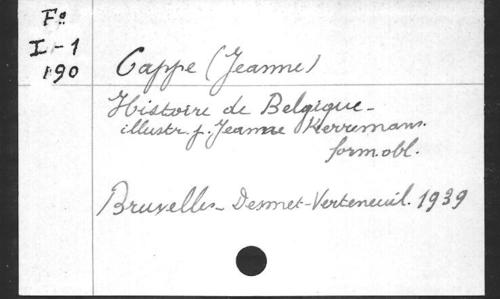 Fo
I-1
190
Cappe (Jeanne)
Histoire de Belgique_
illustr. p. Jeanne Kerremans.
form. obl.
Bruxelles_ Desmet-Verteneuil. 1939